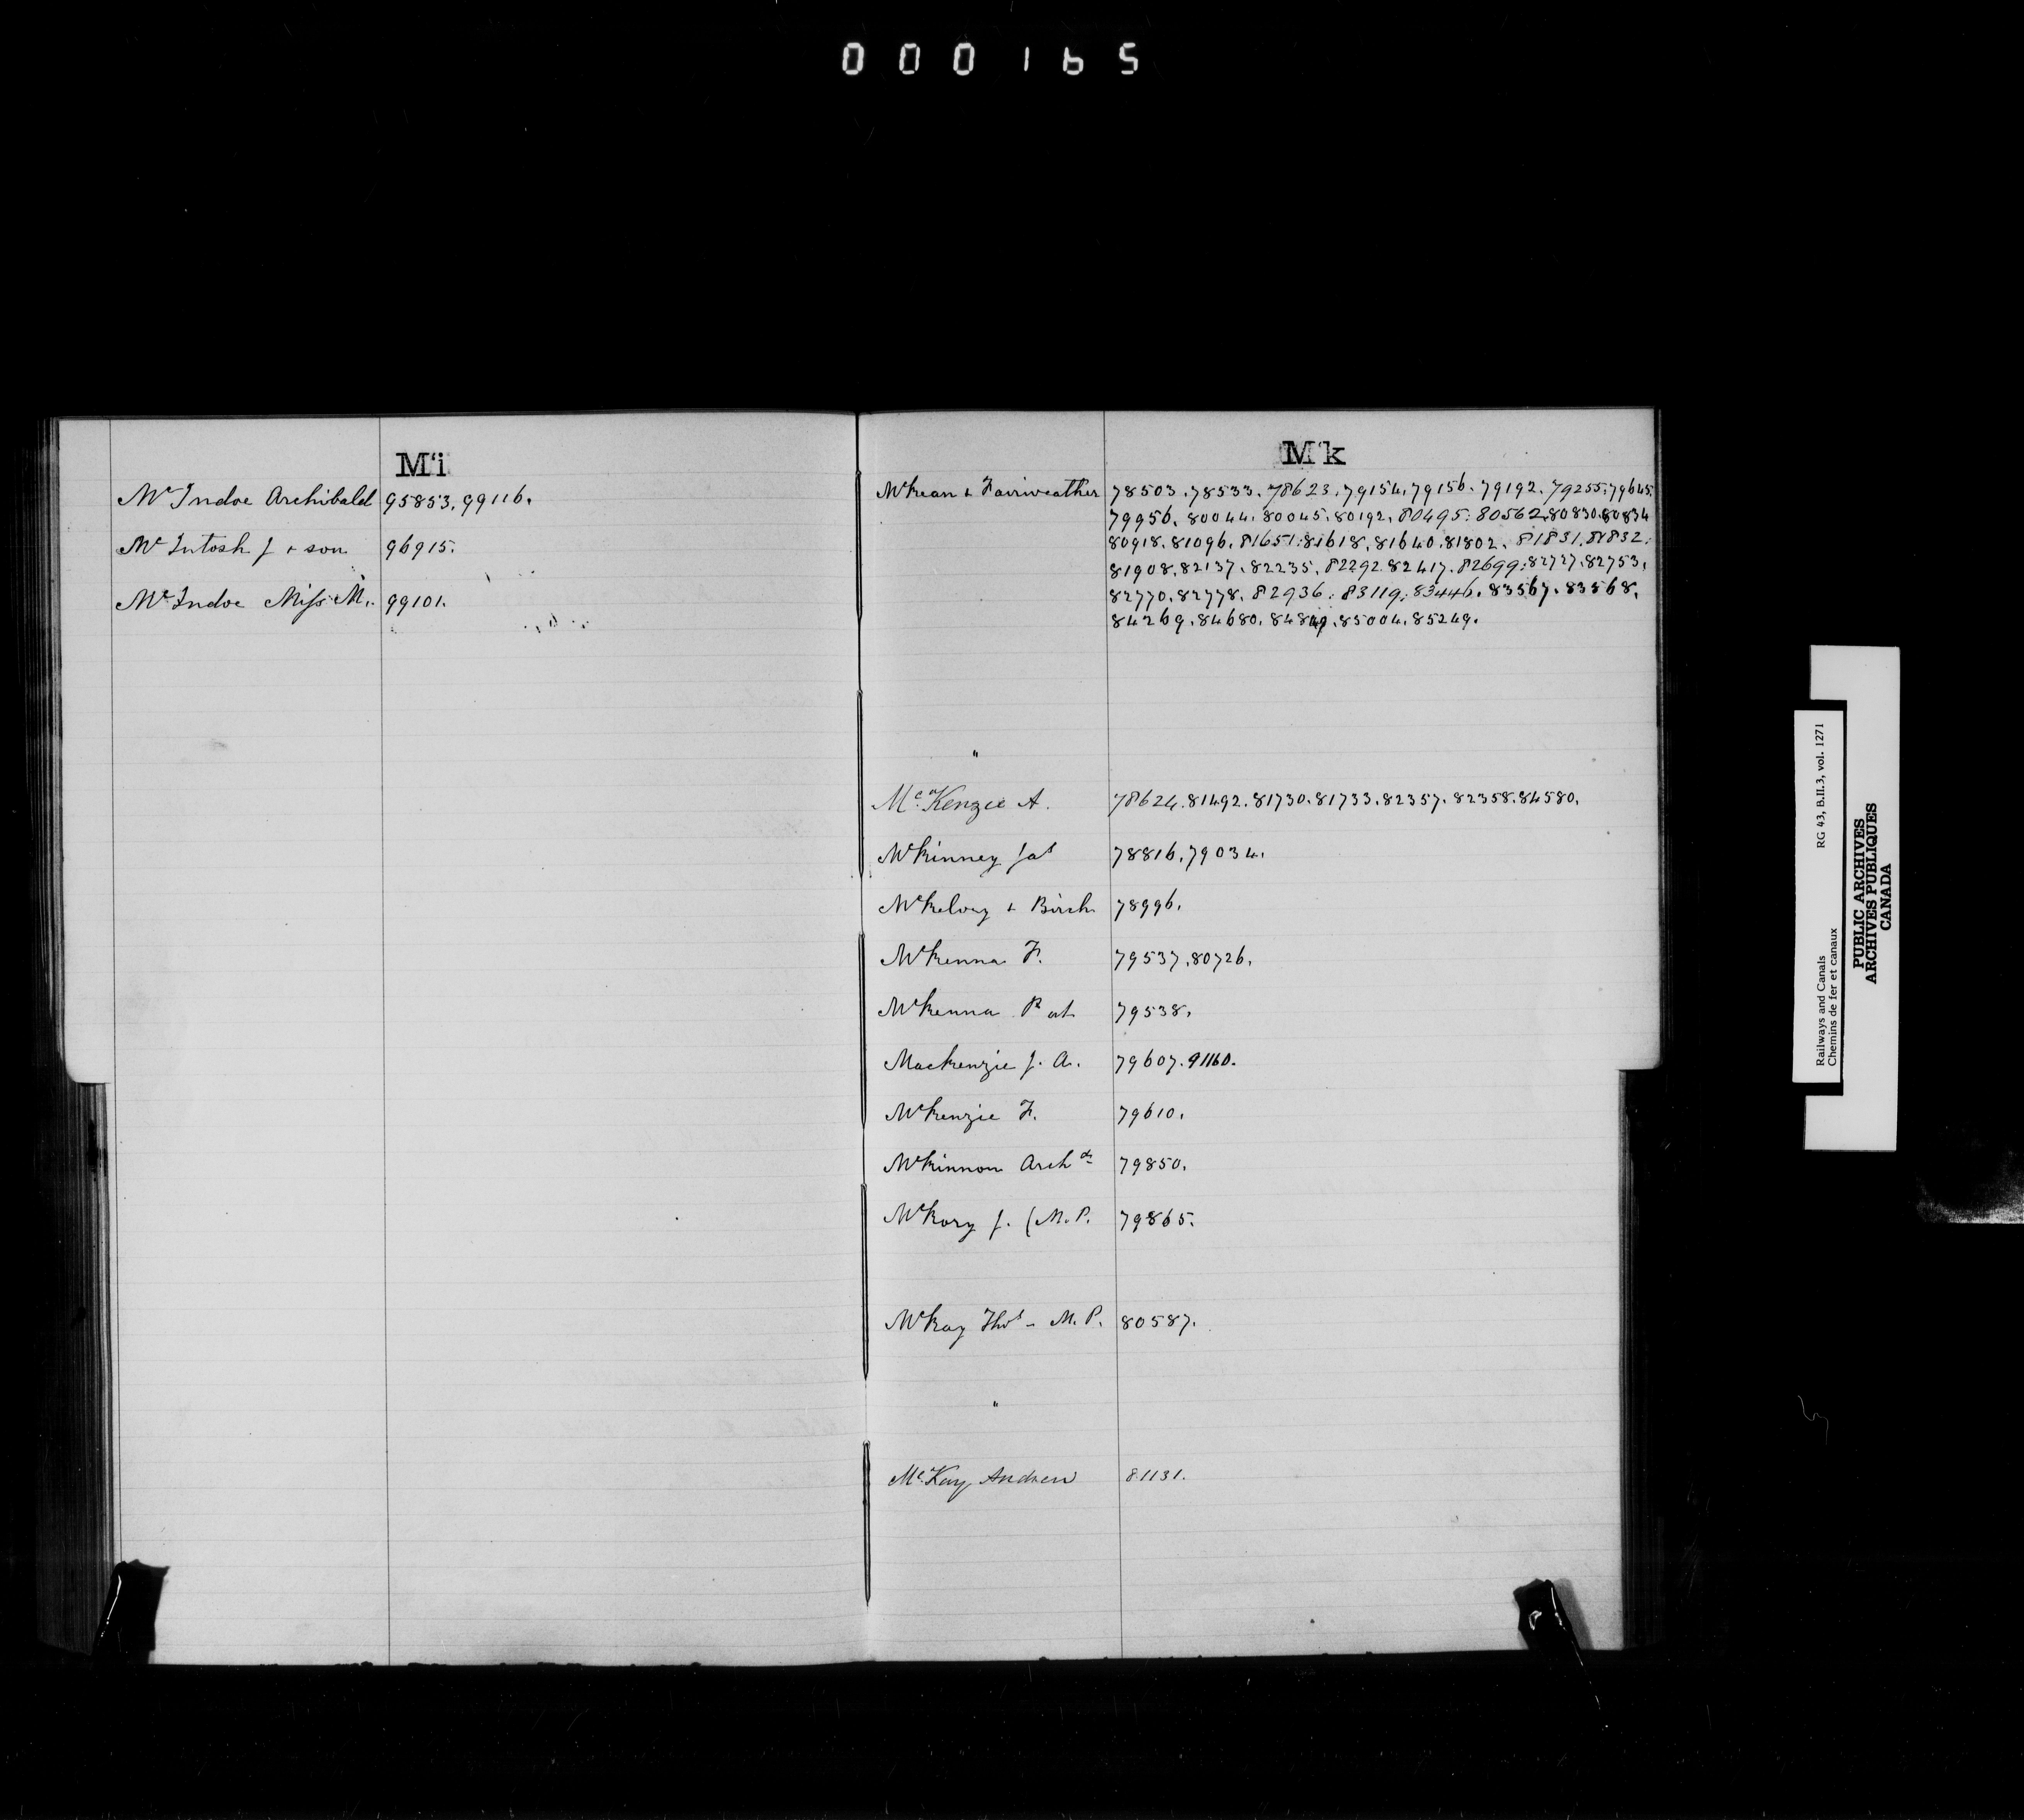 000165
Mci
Mc Indoe Archibald 95853. 99116.
Mc Intosh J + son 96915.
Mc Indoe Miss M. 99101.
Mck
McKean & Fairweather 78503. 78533. 78623. 79154. 79156. 79192. 79255. 79645.
79956. 80044. 80045. 80192. 80495. 80562. 80830. 80834
80918. 81096. 81651. 81618. 81640. 81802. 81831. 81832.
81908. 82137. 82235. 82292. 82417. 82699. 82727. 82753.
82770. 82778. 82936. 83119. 83446. 83567. 83568.
84269. 84680. 85004. 85249.
"
McKenzie A. 78624. 81492. 81730. 81733. 82357. 82358. 84580.
McKinney Jas 78816. 79034.
McKelvey + Birch 78996.
McKenna F. 79537. 80726.
McKenna Pat 79538.
Mackenzie J. A. 79607. 91160.
McKenzie F. 79610.
McKinnon Archd 79850.
McKory J. (M.P. 79865.
McKay Thos - M.P. 80587.
"
McKay Andrew 81131.
Railways and Canals RG 43, B.II.3, vol. 1271
Chemins de fer et canaux
PUBLIC ARCHIVES
ARCHIVES PUBLIQUES
CANADA